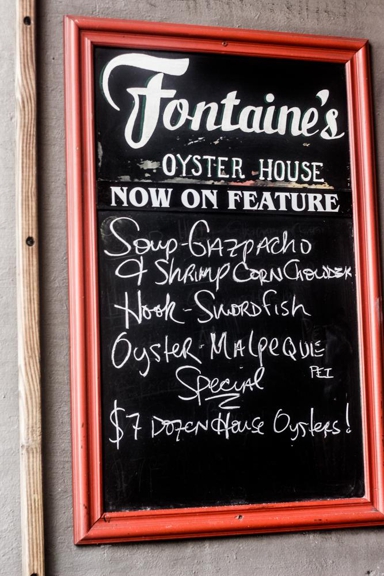 Fontaine's
OYSTER HOUSE
NOW ON FEATURE
Soup-Gazpacho
& Shrimp Corn Chowder
Hook-Swordfish
Oyster-Malpeque
PEI
Special
$7 Dozen House Oysters!